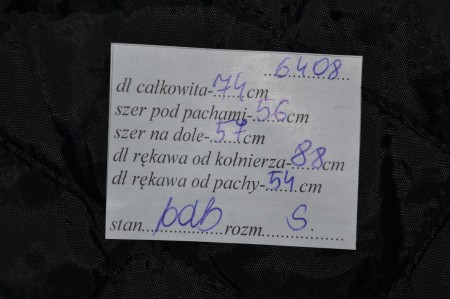 6408
dl całkowita-74cm
szer pod pachami-56cm
szer na dole-57cm
dl rękawa od kołnierza-88cm
dl rękawa od pachy-54cm
stan bdb rozm S.